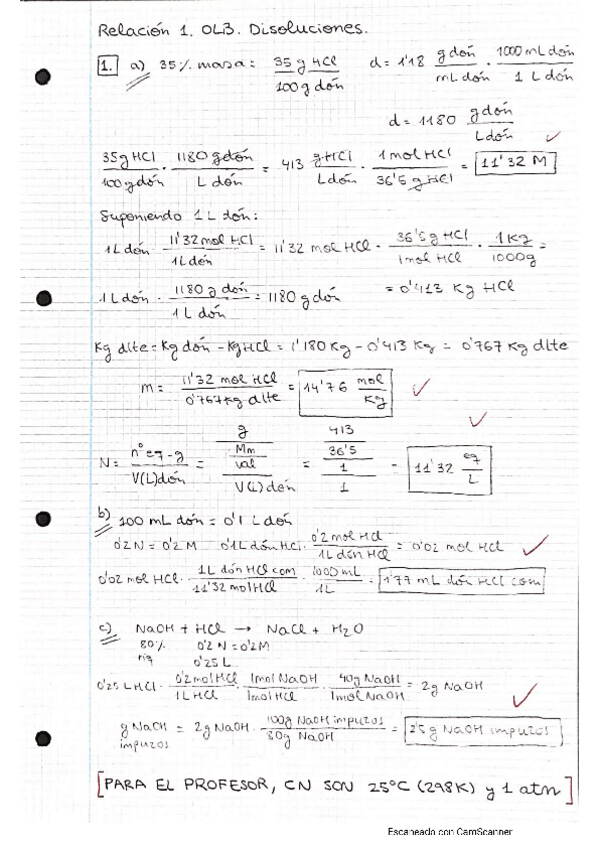 Relación 1. OLB. Disoluciones.
1. a) 35% masa = 35 g HCl / 100 g dón d = 1'18 g dón / mL dón · 1000 mL dón / 1 L dón
d = 1180 g dón / L dón ✓
35 g HCl / 100 g dón · 1180 g dón / L dón = 413 g HCl / L dón · 1 mol HCl / 36'5 g HCl = 11'32 M
Suponiendo 1 L dón:
1 L dón · 11'32 mol HCl / 1 L dón = 11'32 mol HCl · 36'5 g HCl / 1 mol HCl · 1 Kg / 1000 g =
= 0'413 Kg HCl
1 L dón · 1180 g dón / 1 L dón = 1180 g dón
Kg dlte = Kg dón - Kg HCl = 1'180 Kg - 0'413 Kg = 0'767 Kg dlte
m = 11'32 mol HCl / 0'767 Kg dlte = 14'76 mol / Kg ✓
✓
N = nº eq-g / V(L) dón = g / Mm / val / V(L) dón = 413 / 36'5 / 1 / 1 = 11'32 eq / L
b) 100 mL dón = 0'1 L dón
0'2 N = 0'2 M 0'1 L dón HCl · 0'2 mol HCl / 1 L dón HCl = 0'02 mol HCl ✓
0'02 mol HCl · 1 L dón HCl com / 11'32 mol HCl · 1000 mL / 1 L = 1'77 mL dón HCl com
c) NaOH + HCl → NaCl + H2O
80% 0'2 N = 0'2 M
riq 0'25 L
0'25 L HCl · 0'2 mol HCl / 1 L HCl · 1 mol NaOH / 1 mol HCl · 40 g NaOH / 1 mol NaOH = 2 g NaOH
✓
g NaOH impuros = 2 g NaOH · 100 g NaOH impuros / 80 g NaOH = 2'5 g NaOH impuros
[PARA EL PROFESOR, CN SON 25ºC (298K) y 1 atm]
Escaneado con CamScanner